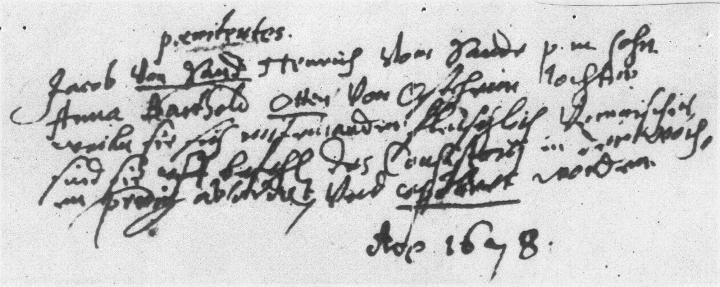 pœnitentes.
Jacob Von Sand Henrich Vom Sande p. m. Sohn
Anna Otten Von Tochter
weiln sie sich mit einander fleischlich vermischet,
sind sie auff befehl des Consistorij in
im und copuliret worden.
Aõ 1678.